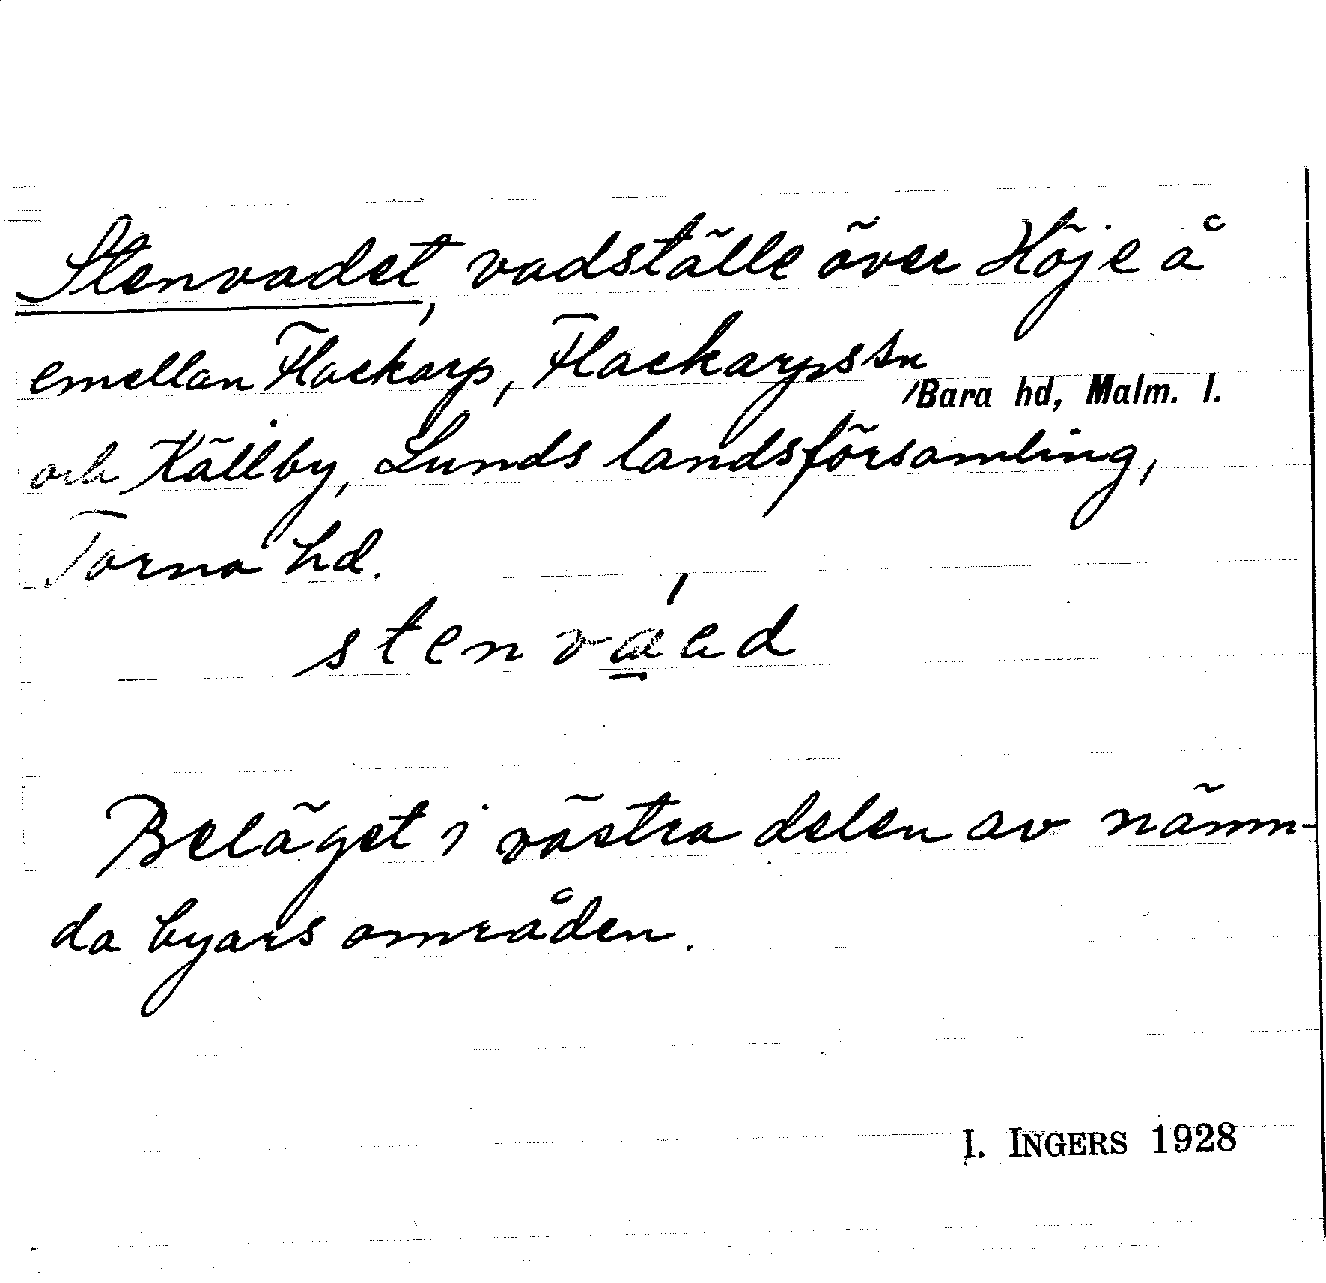 Stenvadet, vadställe över Höje å
emellan Flackarp, Flackarps sn
/Bara hd, Malm. l.
och Källby, Lunds landsförsamling,
Torna hd.
stenvaed
Beläget i västra delen av nämn-
da byars områden.
I. INGERS 1928